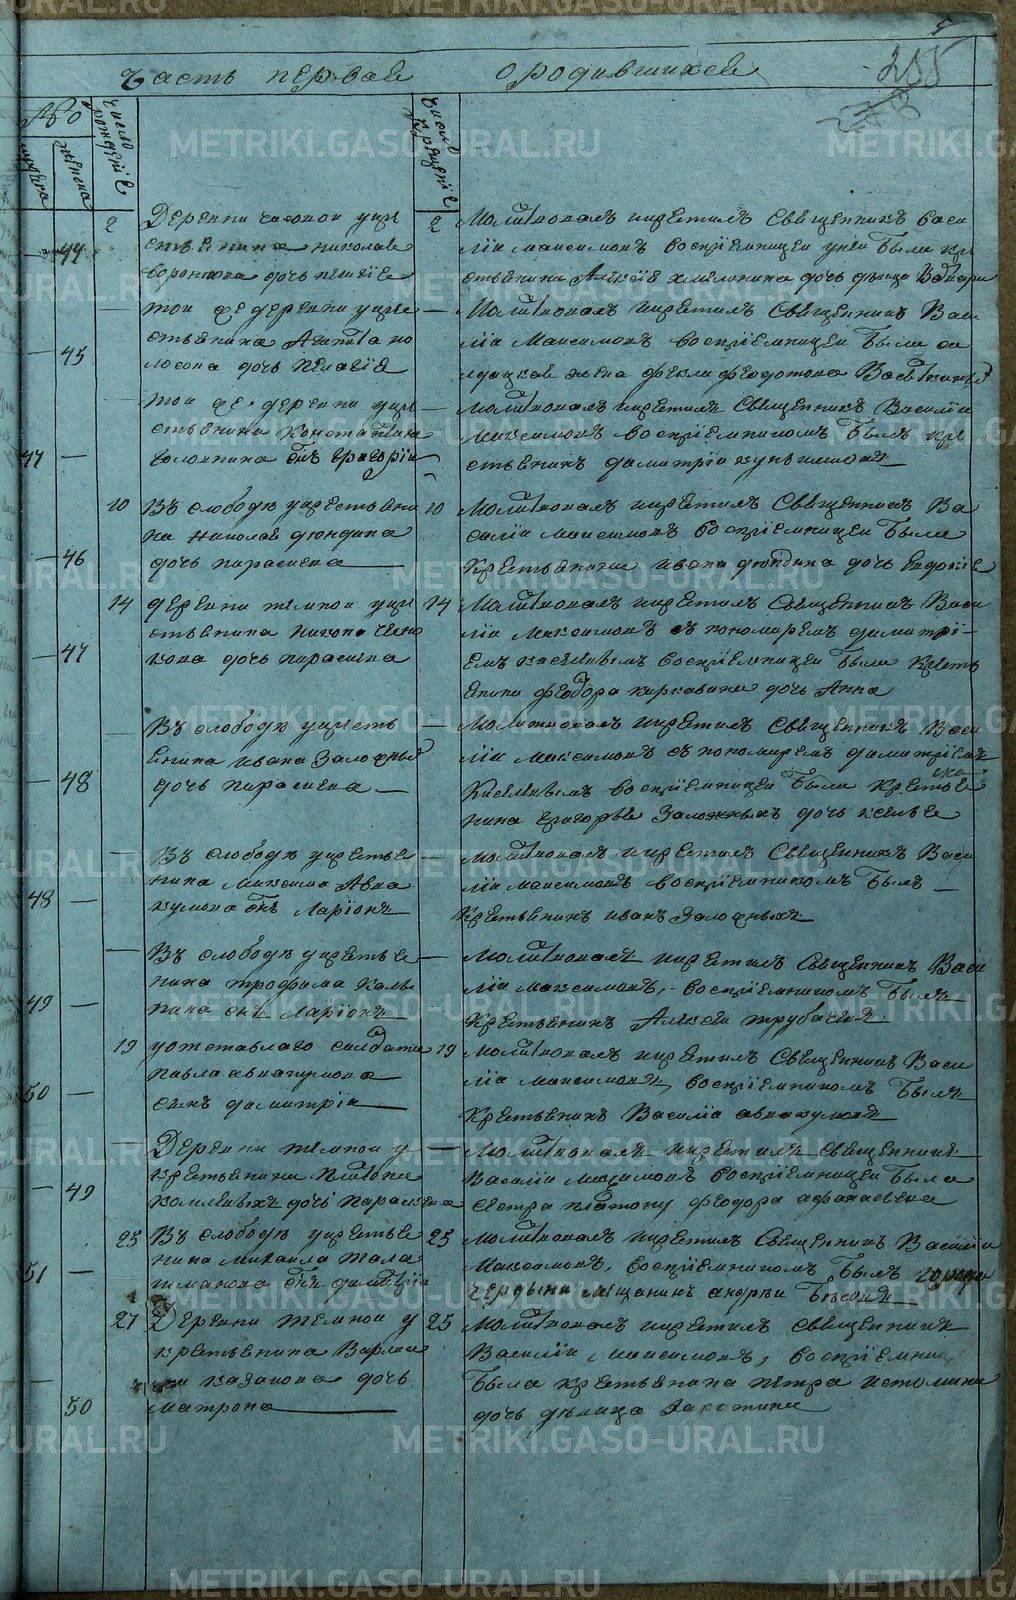 5
Часть первая о родившихся
255
№
мужеска
женска
число рождения
число крещения
2
44
Деревни часовой у кре
стьянина николая
воронкова дочь пелагiя
2
Молитвовалъ и крестилъ Священникъ васи
лiи максимовъ воспрiемницеи у неи была кре
стьянина Алексiя дочь девица Варвара
45
тои же деревни у кре
стьянина ко
лосова дочь пелагiя
Молитвовалъ и крестилъ Священникъ Васи
лiи Максимовъ воспрiемницеи была со
лдацкая жена фекла федотова
47
тои же деревни у кре
стьянина Константина
сынъ григорiи
Молитвовалъ и крестилъ Священникъ Василiи
максимовъ воспрiемникомъ былъ кре
стьянинъ димитрiи
10
46
Въ слободе у крестьяни
на николая дюндина
дочь параскева
10
Молитвовалъ и крестилъ Священникъ Ва
силiи максимовъ воспрiемницеи была
крестьянина ивана дюндина дочь евдокiя
14
47
деревни темнои у кре
стьянина никона
дочь параскева
14
Молитвовалъ и крестилъ Священникъ Васи
лiи Максимовъ съ пономаремъ димитрi
емъ киселевымъ воспрiемницеи была кресть
янина феодора дочь Анна
48
Въ слободе у кресть
янина ивана Заложныхъ
дочь параскева
Молитвовалъ и крестилъ Священникъ Васи
лiи максимовъ съ пономаремъ димитрiемъ
Киселевымъ воспрiемницеи была крестья
нина григорья Заложныхъ дочь
48
Въ слободе у крестья
нина максима Авва
кумова сынъ Ларiонъ
Молитвовалъ и крестилъ Священникъ Васи
лiи максимовъ воспрiемникомъ былъ
крестьянинъ иванъ Заложныхъ
49
Въ слободе у крестья
нина трофима
сынъ Ларiонъ
Молитвовалъ и крестилъ Священникъ Васи
лiи максимовъ, воспрiемникомъ былъ
крестьянинъ Алексеи
19
50
у отставнаго солдата
павла аввакумова
сынъ димитрiи
19
Молитвовалъ и крестилъ Священникъ Васи
лiи максимовъ, воспрiемникомъ былъ
крестьянинъ Василiи аввакумовъ
49
Деревни темнои у
крестьянина платона
дочь параскева
Молитвовалъ и крестилъ священникъ
Василiи максимовъ воспрiемницеи была
сестра платону феодора афанасьева
25
51
Въ слободе у крестья
нина михаила тала
шманова сынъ димитрiи
25
Молитвовалъ и крестилъ Священникъ Василiи
Максимовъ, воспрiемникомъ былъ города
чердыни мещанинъ андреи
27
50
Деревни темнои у
крестьянина Варлаа
ма казакова дочь
матрона
25
Молитвовалъ и крестилъ священникъ
Василiи максимовъ, воспрiемниц
была крестьянина петра истомина
дочь девица харитина
METRIKI.GASO-URAL.RU